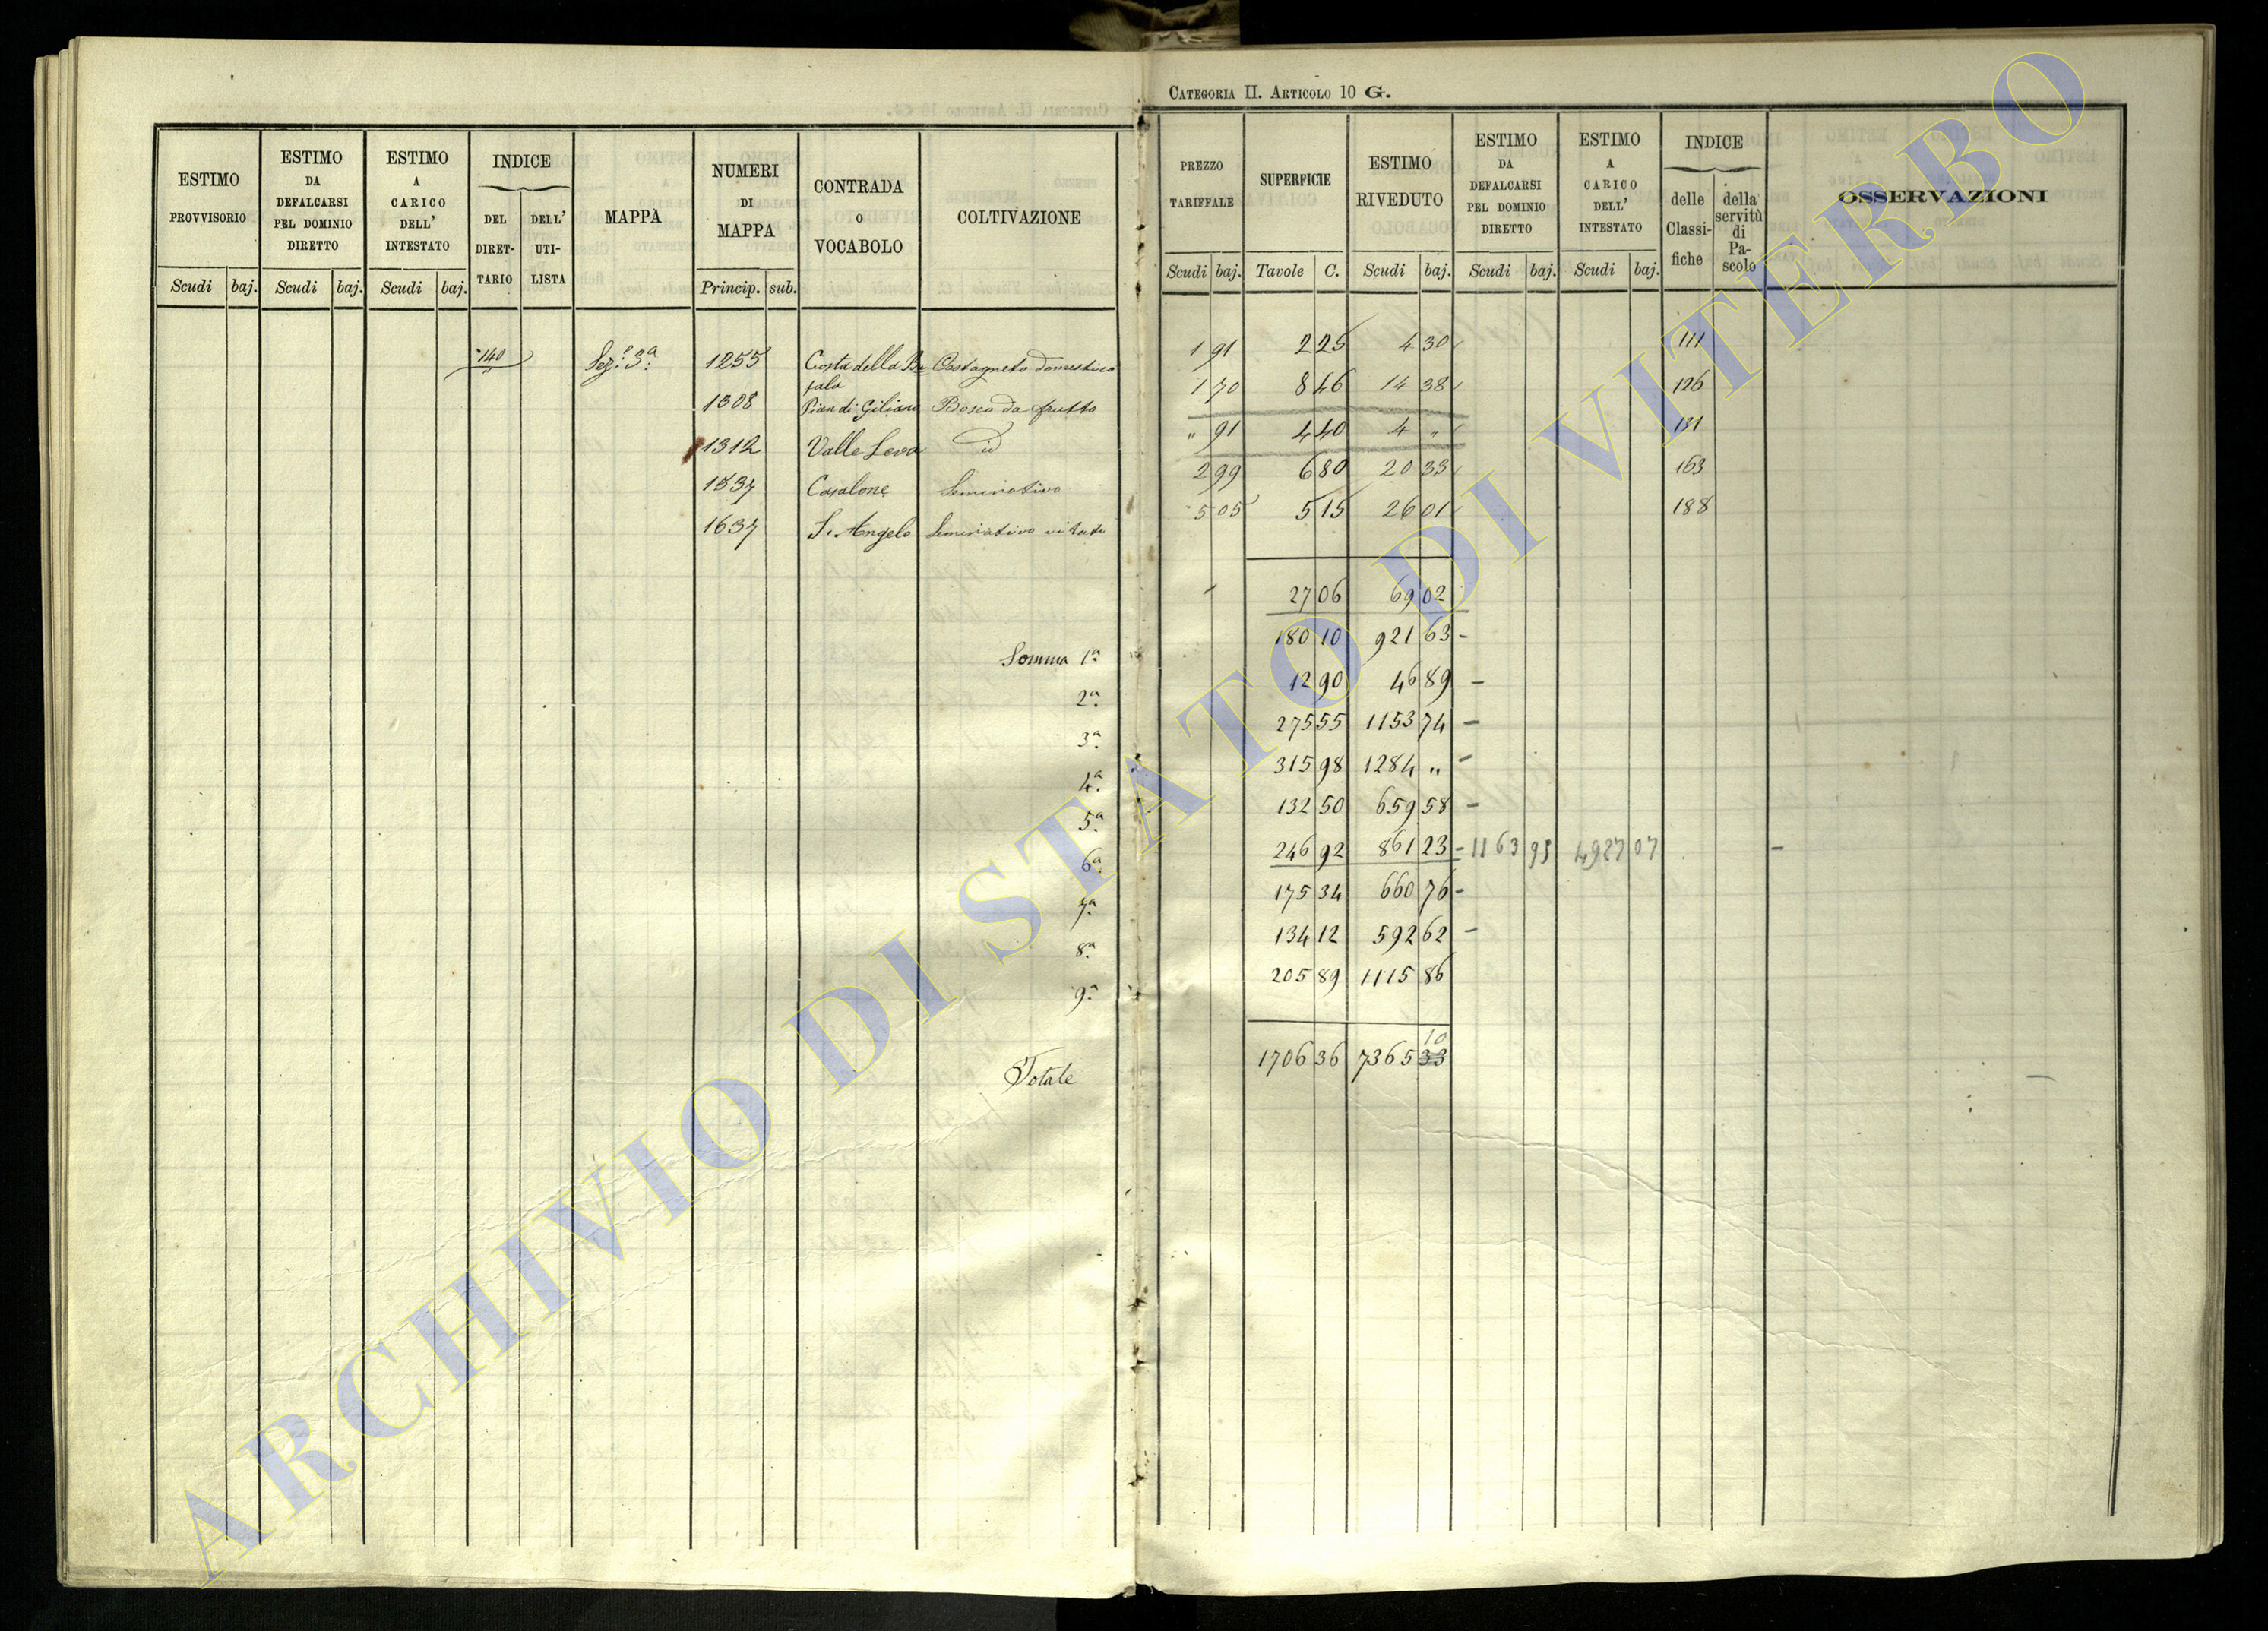 CATEGORIA II. ARTICOLO 10 G.
ESTIMO PROVVISORIO
Scudi baj.
ESTIMO DA DEFALCARSI PEL DOMINIO DIRETTO
Scudi baj.
ESTIMO A CARICO DELL' INTESTATO
Scudi baj.
INDICE
DEL DIRETTARIO
DELL' UTILISTA
MAPPA
NUMERI DI MAPPA
Princip. sub.
CONTRADA O VOCABOLO
COLTIVAZIONE
PREZZO TARIFFALE
Scudi baj.
SUPERFICIE
Tavole C.
ESTIMO RIVEDUTO
Scudi baj.
ESTIMO DA DEFALCARSI PEL DOMINIO DIRETTO
Scudi baj.
ESTIMO A CARICO DELL' INTESTATO
Scudi baj.
INDICE
delle Classifiche
della servitù di Pascolo
OSSERVAZIONI
140 Sez.e 3a 1255 Costa della Bufala Castagneto domestico 1 91 2 25 4 30 111
1308 Pian di Giliano Bosco da frutto 1 70 8 46 14 38 126
1312 Valle Leva id " 91 4 40 4 " 131
1537 Casalone Seminativo 2 99 6 80 20 33 163
1637 S. Angelo Seminativo vitato 5 05 5 15 26 01 188
27 06 69 02
Somma 1a 180 10 921 63
2a 12 90 46 89
3a 275 55 1153 74
4a 315 98 1284 "
5a 132 50 659 58
6a 246 92 861 23 1163 93 4927 07
7a 175 34 660 76
8a 134 12 592 62
9a 205 89 1115 86
10
Totale 1706 36 7365 33
ARCHIVIO DI STATO DI VITERBO